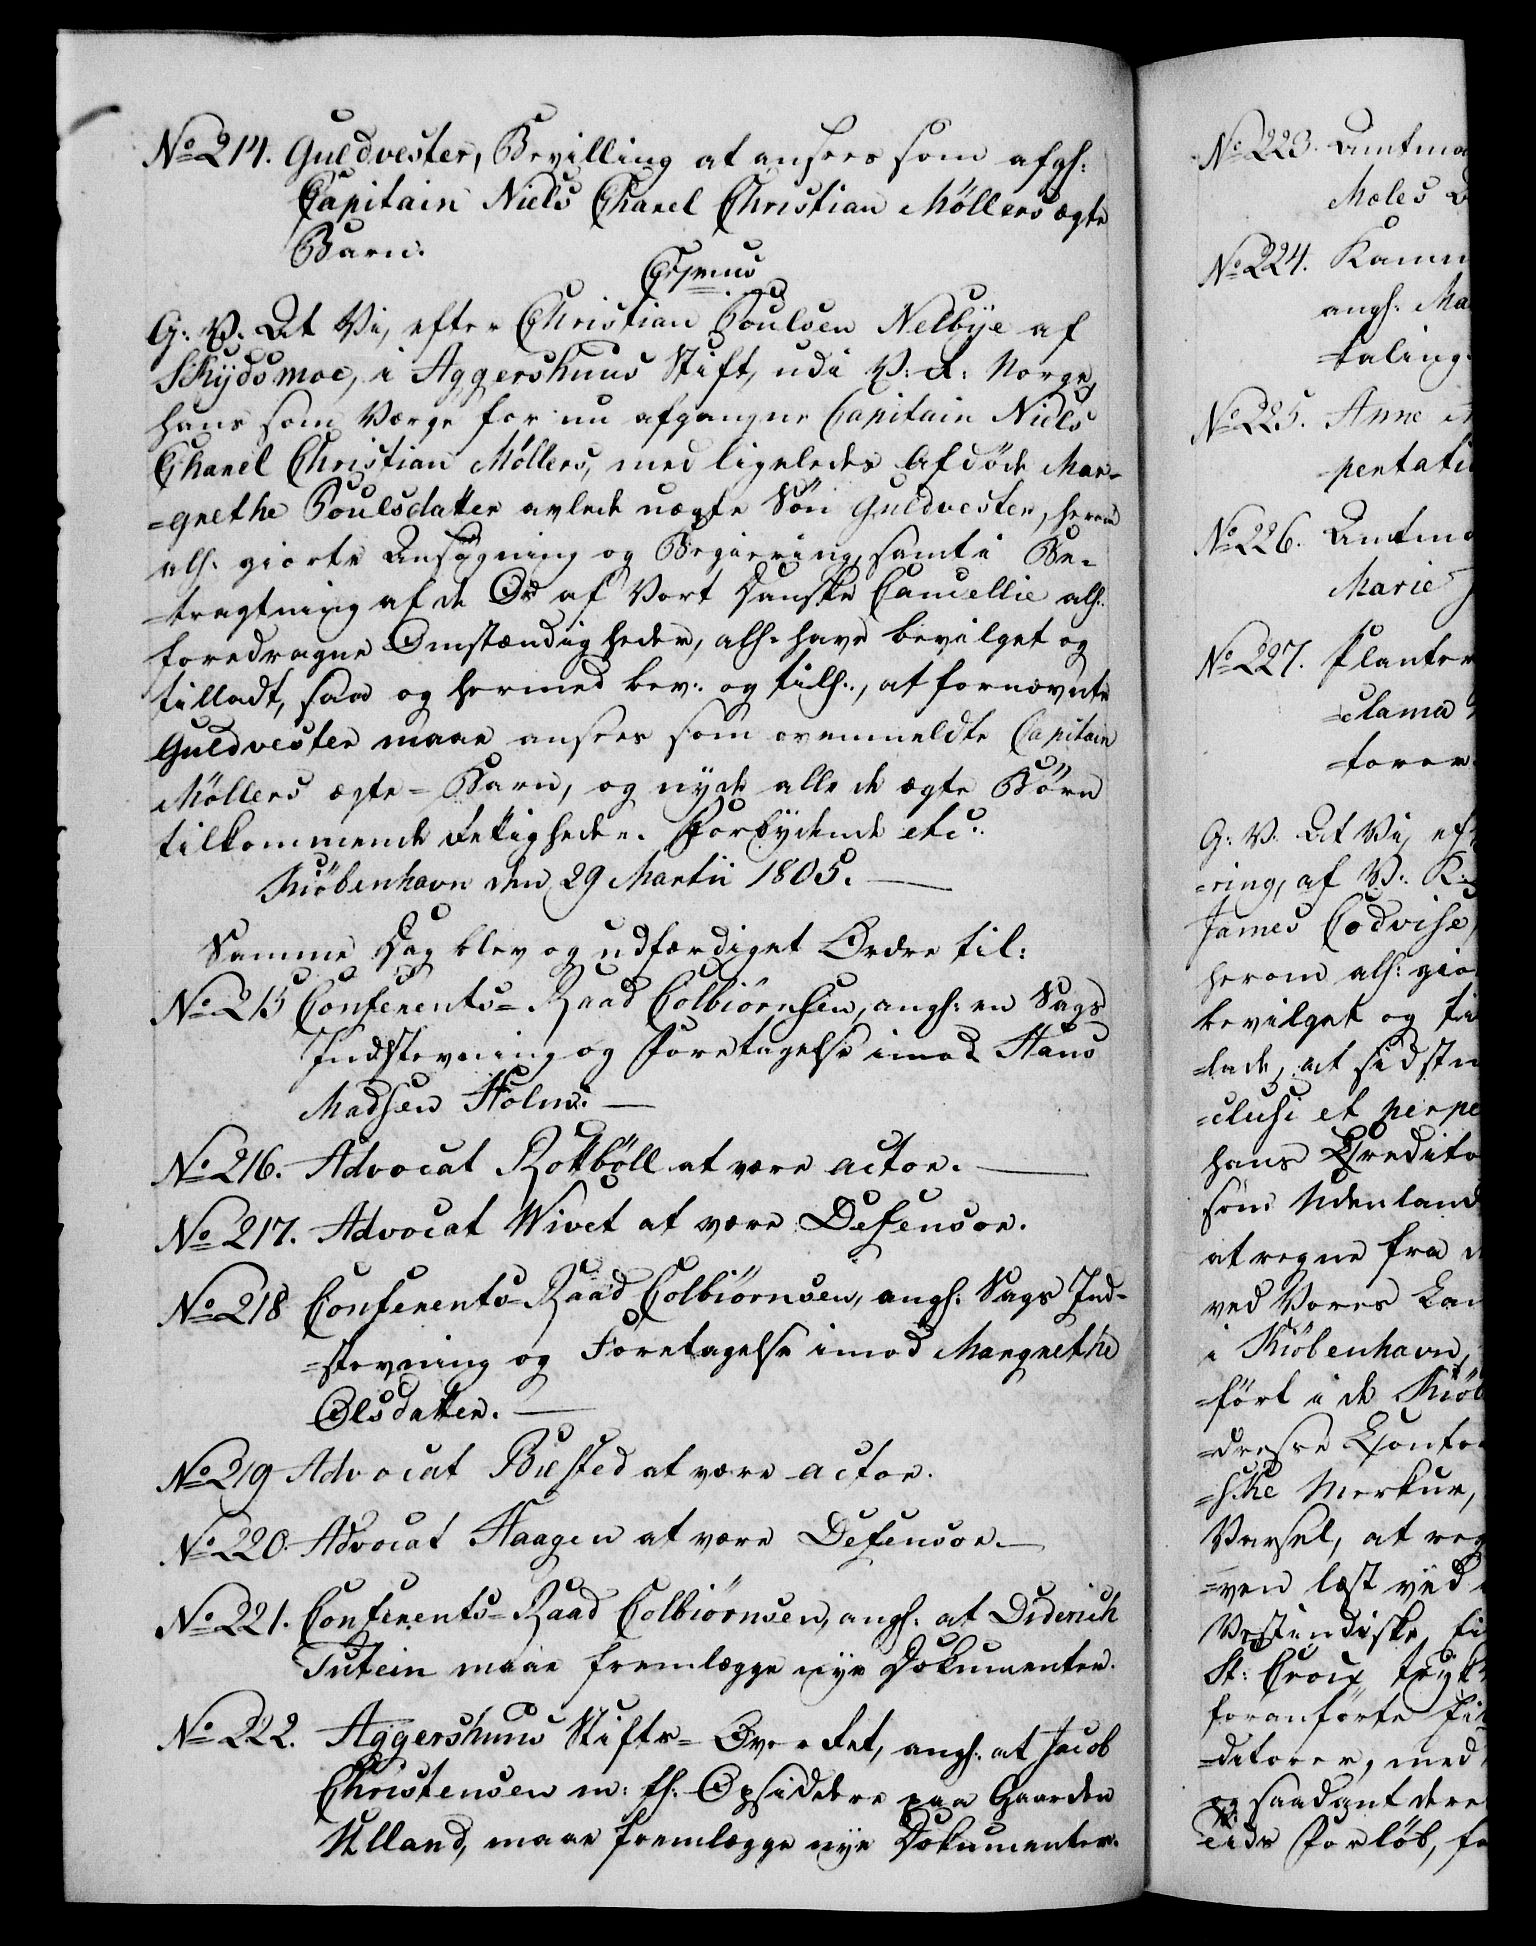 No 214. Guldvester, Bevilling at ansees som afg:
Capitain Niels Charel Christian Möllers ægte
Barn.
Gratis
G: V: At Vi, efter Christian Poulsen Nelbye af
Skydsmoe, i Aggershuus Stift, udi V: R: Norge,
hans som Værge for nu afgangne Capitain Niels
Charel Christian Möllers, med ligeledes Afdöde Mar-
=grethe Poulsdatter avlede uægte Sön Guldvester, herom
all: giorte Ansøgning og Begiering, samt i Be-
=tragtning af de Os af Vort Danske Cancellie all:
foredragne Omstændigheder, all: have bevilget og
tilladt, saa og hermed bev: og till:, at fornævnte
Guldvester maae ansees som ovenmeldte Capitain
Möllers ægte-Barn, og nyde alle de ægte Börn
tilkommende Rettigheder. Forbydende etc:
Kiöbenhavn den 29 Martii 1805.
Samme Dag blev og udfærdiget Ordre til:
No 215 Conferents-Raad Colbiörnsen, ang: en Sags
Indstevning og Foretagelse imod Hans
Madsen Holm.
No 216. Advocat Rottböll at være actor.
No 217. Advocat Wivet at være Defensor.
No 218 Conferents-Raad Colbiörnsen, ang: Sags Ind-
=stevning og Foretagelse imod Margrethe
Olsdatter.
No 219 Advocat Buested at være actor.
No 220. Advocat Haagen at være Defensor.
No 221. Conferents-Raad Colbiörnsen, ang: at Diderich
Tutein maae fremlægge nye Dokumenter.
No 222. Aggershuus Stifts-Over Ret, ang: at Jacob
Christensen m: fl: Opsiddere paa Gaarden
Ulland, maae fremlægge nye Dokumenter.
No 223. Amtma
Moles
No 224. Kamm
ang: Ma
=taling
No 225. Anne
=pentati
No 226. Amtma
Marie
No 227. Planter
=clama
=torer
G: V: At Vi, ef
=ring, af V: K:
James Codvise,
herom all: gio
bevilget og ti
=lade, at sidstn
=clusi et perpe
hans Credito
som Udenland
at regne fra d
ved Vores Lan
i Kiöbenhavn,
=fört i de Kiöb
=dresse Conto
=ske Merkur,
Varsel, at reg
=ven læst ved
Vestindiske
St: Croix, tryk
foranförte
=ditorer, med
og saadant dere
Tids Forlöb, fo